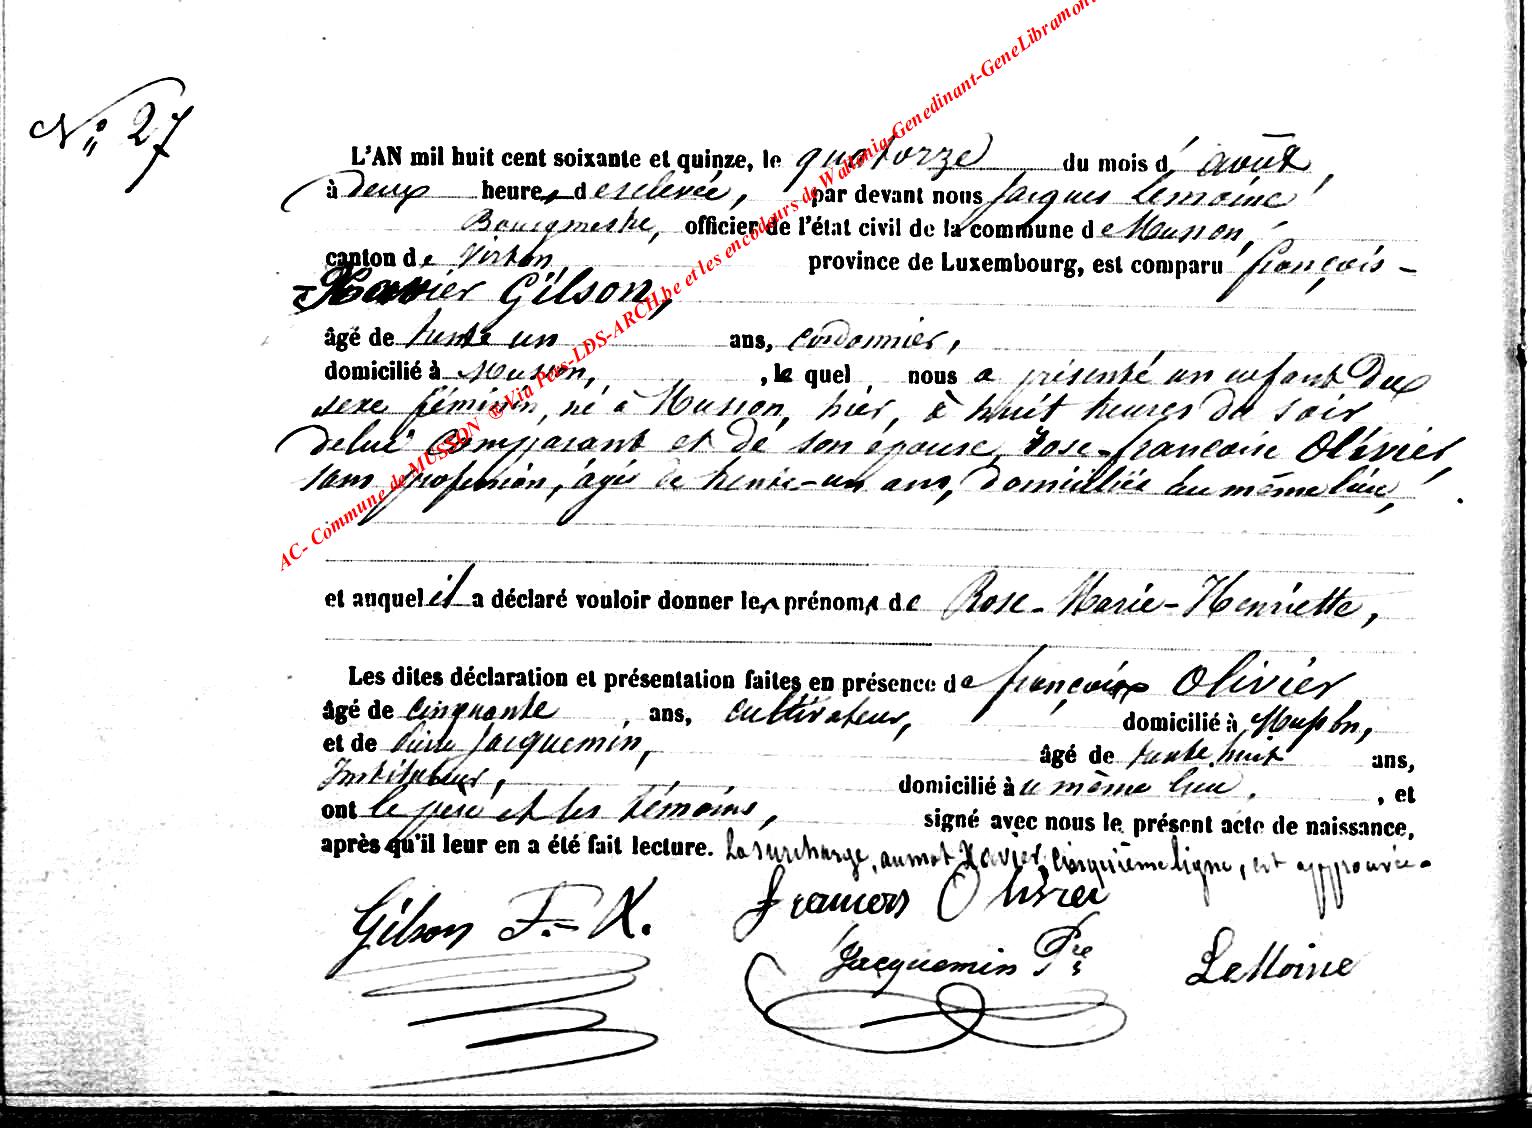 N° 27
L'AN mil huit cent soixante et quinze, le quatorze du mois d'août,
à deux heures de relevée, par devant nous Jacques Lemoine
Bourgmestre, officier de l'état civil de la commune de Musson,
canton de Virton province de Luxembourg, est comparu françois-
Xavier Gilson,
âgé de trente un ans, cordonnier,
domicilié à Musson, , lequel nous a présenté un enfant du
sexe féminin, né à Musson, hier, à huit heures du soir
de lui comparant et de son épouse, Rose-françoise Olivier,
sans profession, âgée de trente-un ans, domiciliée au même lieu,
et auquel il a déclaré vouloir donner les prénoms de Rose-Marie-Henriette,
Les dites déclaration et présentation faites en présence de françois Olivier
âgé de cinquante ans, cultivateur, domicilié à Musson,
et de Pierre Jacquemin, âgé de trente huit ans,
Instituteur, domicilié au même lieu, , et
ont le père et les témoins, signé avec nous le présent acte de naissance,
après qu'il leur en a été fait lecture. La surcharge, au mot Xavier, cinquième ligne, est approuvée.
Gilson F.-X. Francois Olivier
Jacquemin Pre LeMoine
AC- Commune de MUSSON ® Via Pers-LDS-ARCH.be et les encodeurs de Wallonia-Genedinant-GeneLibramont